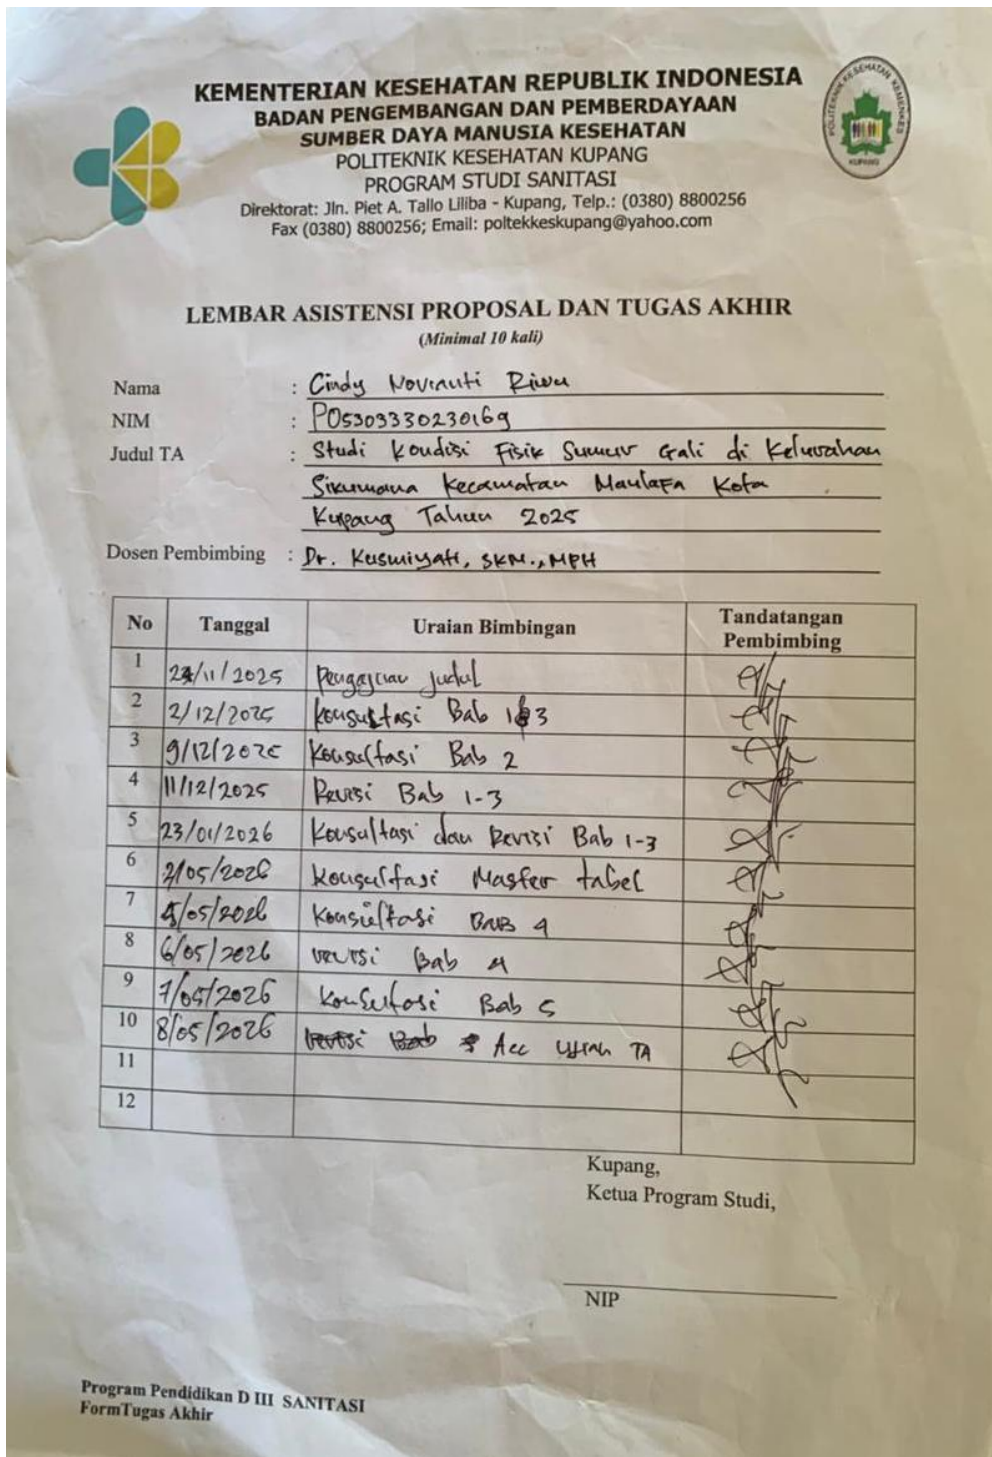 KEMENTERIAN KESEHATAN REPUBLIK INDONESIA
BADAN PENGEMBANGAN DAN PEMBERDAYAAN
SUMBER DAYA MANUSIA KESEHATAN
POLITEKNIK KESEHATAN KUPANG
PROGRAM STUDI SANITASI
Direktorat: Jln. Piet A. Tallo Liliba - Kupang, Telp.: (0380) 8800256
Fax (0380) 8800256; Email: poltekkeskupang@yahoo.com
POLITEKNIK KESEHATAN KEMENKES
KUPANG
LEMBAR ASISTENSI PROPOSAL DAN TUGAS AKHIR
(Minimal 10 kali)
Nama : Cindy Riwu
NIM : PO5303330230169
Judul TA : Studi Kondisi Fisik Sumur Gali di Kelurahan
Sikumana Kecamatan Maulafa Kota
Kupang Tahun 2025
Dosen Pembimbing : Dr. Kusmiyati, SKM., MPH
No Tanggal Uraian Bimbingan Tandatangan Pembimbing
1 /11/2025 Pengajuan judul
2 2/12/2025 Konsultasi Bab 1 3
3 9/12/2025 Konsultasi Bab 2
4 11/12/2025 Revisi Bab 1-3
5 23/01/2026 Konsultasi dan Revisi Bab 1-3
6 /05/2026 Konsultasi Master tabel
7 /05/2026 Konsultasi BAB 4
8 6/05/2026 revisi Bab 4
9 7/05/2026 Konsultasi Bab 5
10 8/05/2026 Acc Ujian TA
11
12
Kupang,
Ketua Program Studi,
NIP
Program Pendidikan D III SANITASI
FormTugas Akhir